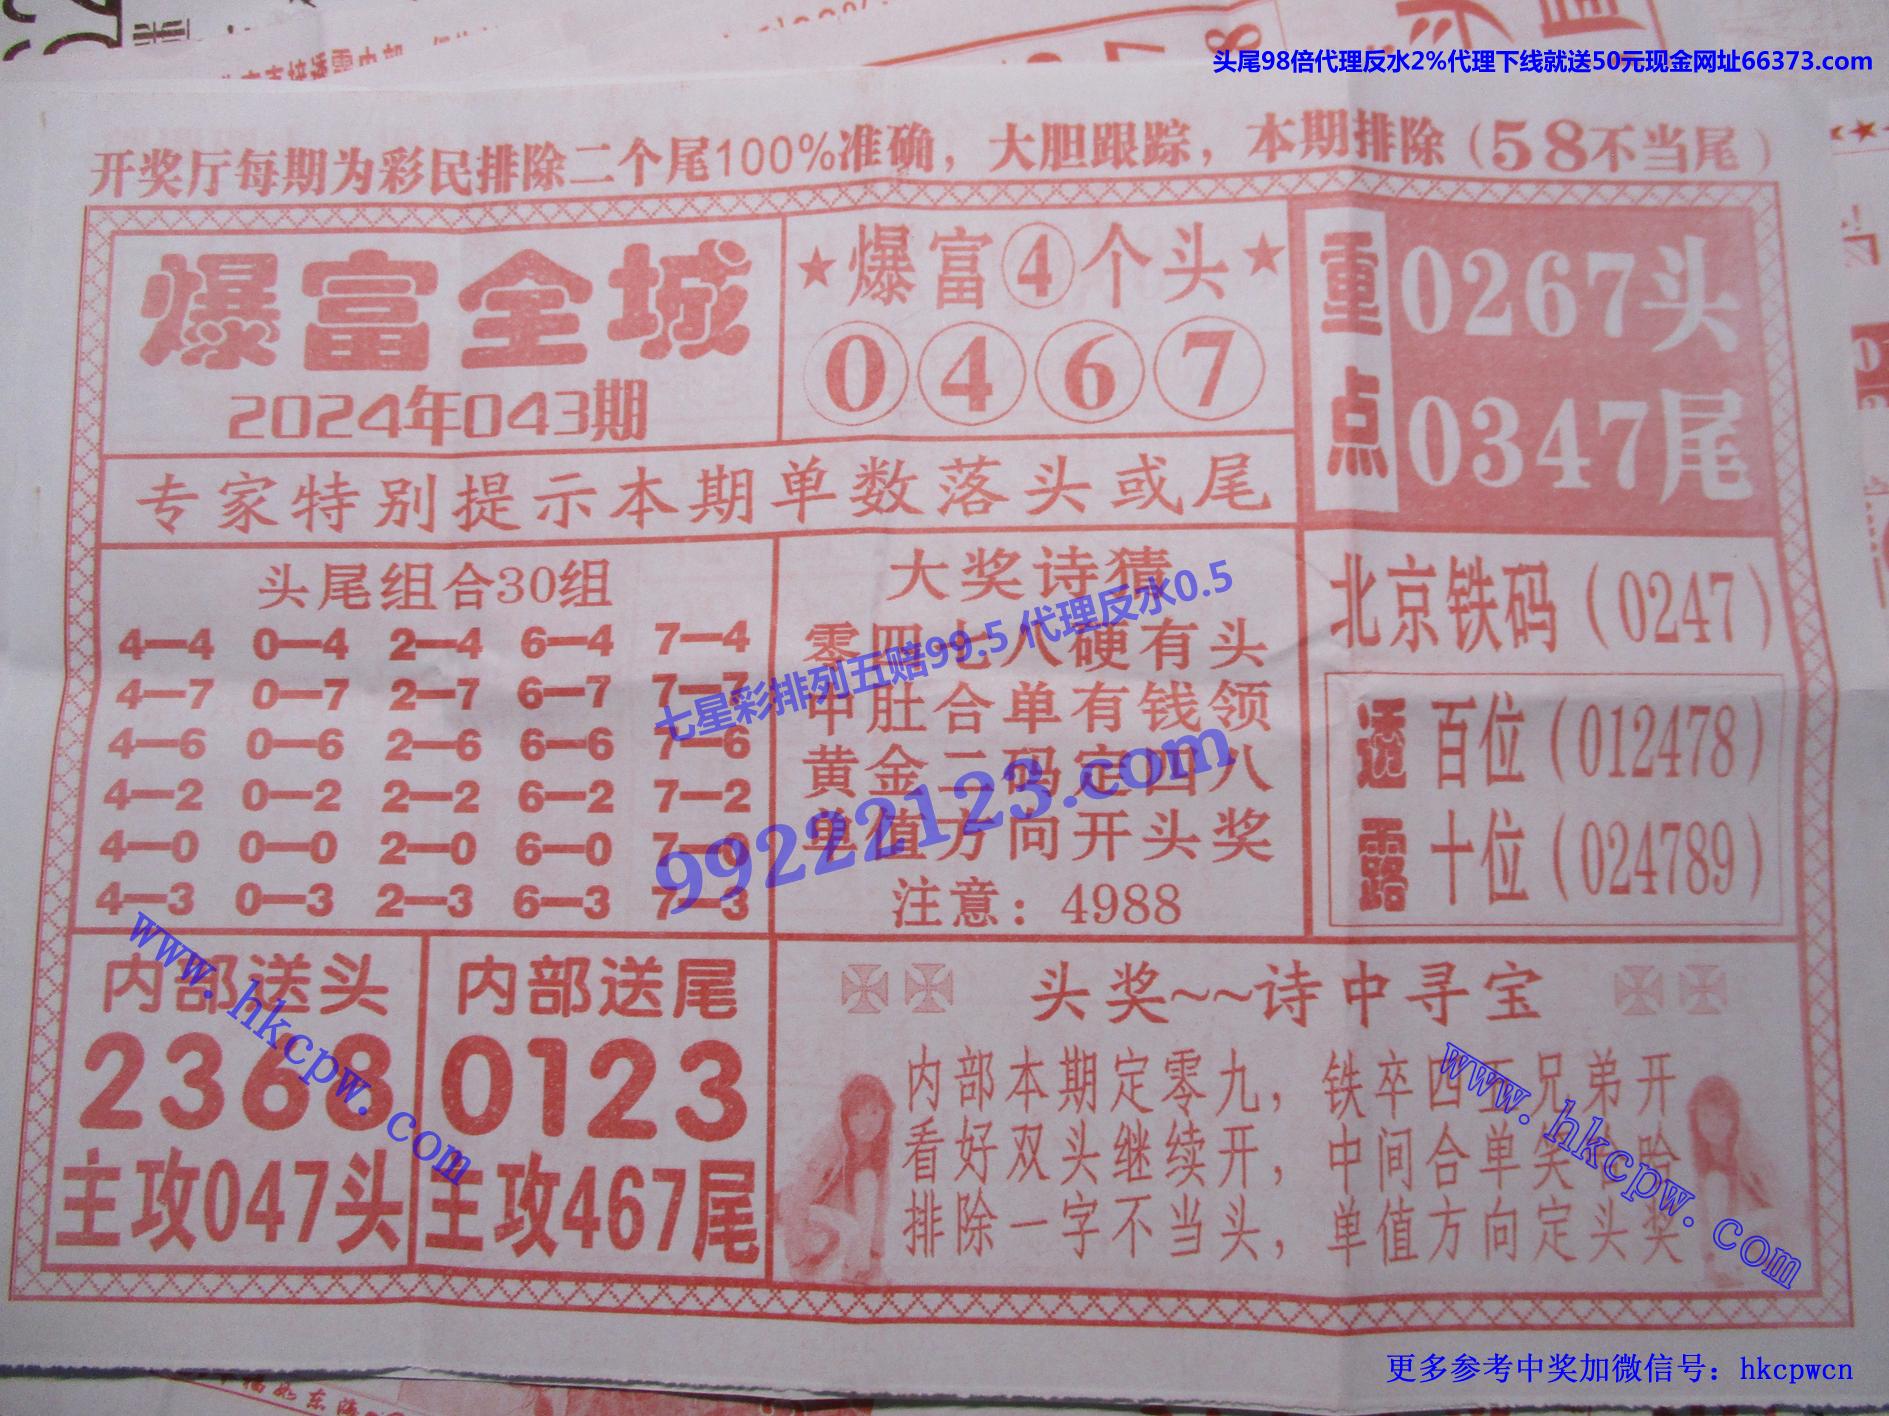 头尾98倍代理反水2%代理下线就送50元现金网址66373.com
开奖厅每期为彩民排除二个尾100%准确，大胆跟踪，本期排除（58不当尾）
爆富全城
2024年043期
★爆富④个头★
0 4 6 7
重点
0267头
0347尾
专家特别提示本期单数落头或尾
头尾组合30组
4—4 0—4 2—4 6—4 7—4
4—7 0—7 2—7 6—7 7—7
4—6 0—6 2—6 6—6 7—6
4—2 0—2 2—2 6—2 7—2
4—0 0—0 2—0 6—0 7—0
4—3 0—3 2—3 6—3 7—3
大奖诗猜
零四七八硬有头
中肚合单有钱领
黄金二码定四八
单值方向开头奖
注意：4988
七星彩排列五赔99.5 代理反水0.5
99222123.com
北京铁码（0247）
透露
百位（012478）
十位（024789）
内部送头
2368
主攻047头
内部送尾
0123
主攻467尾
头奖~~诗中寻宝
内部本期定零九，铁卒四五兄弟开
看好双头继续开，中间合单笑哈
排除一字不当头，单值方向定头奖
www.hkcpw.com
www.hkcpw.com
更多参考中奖加微信号：hkcpwcn